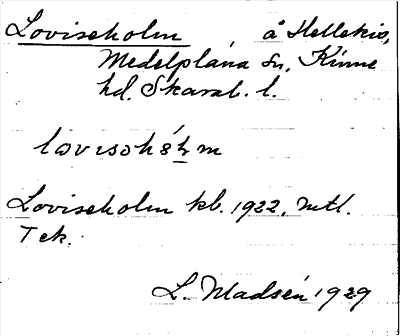 Loviseholm å Hellekis,
Medelplana sn, Kinne
hd. Skarab. l.
lovisəhɔ́lm
Loviseholm kb. 1922, mtl.
Tek.
L. Madsén 1929